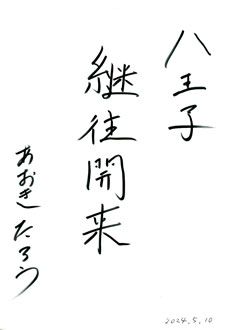 八王子
継往開来
あおきたろう
2024.5.10